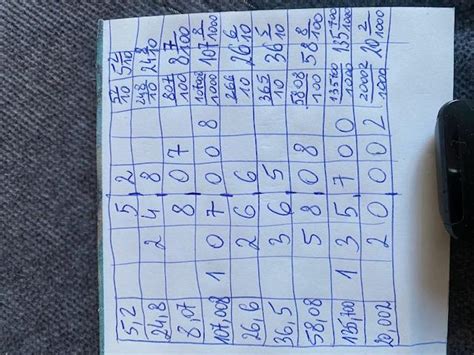 5,2 5 , 2 52/10 5 2/10
24,8 2 4 , 8 248/10 24 8/10
8,07 8 , 0 7 807/100 8 7/100
107,008 1 0 7 , 0 0 8 107008/1000 107 8/1000
26,6 2 6 , 6 266/10 26 6/10
36,5 3 6 , 5 365/10 36 5/10
58,08 5 8 , 0 8 5808/100 58 8/100
135,700 1 3 5 , 7 0 0 135700/1000 135 700/1000
20,002 2 0 , 0 0 2 20002/1000 20 2/1000